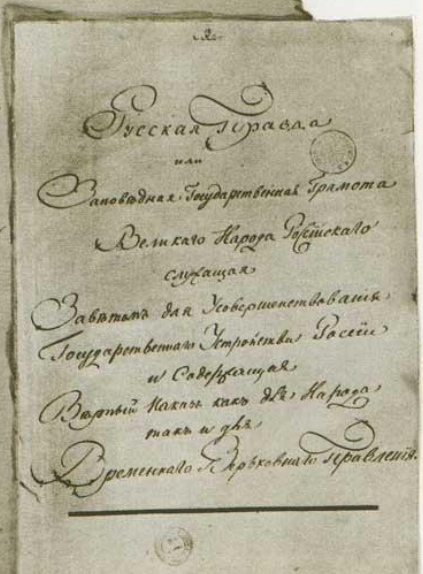 Русская Правда
или
Заповѣдная Государственная Грамота
Великаго Народа Россійскаго
служащая
Завѣтомъ для Усовершенствованія
Государственнаго Устройства Россіи
и Содержащая
Вѣрный Наказъ какъ для Народа
такъ и для
Временнаго Верховнаго Правленія.